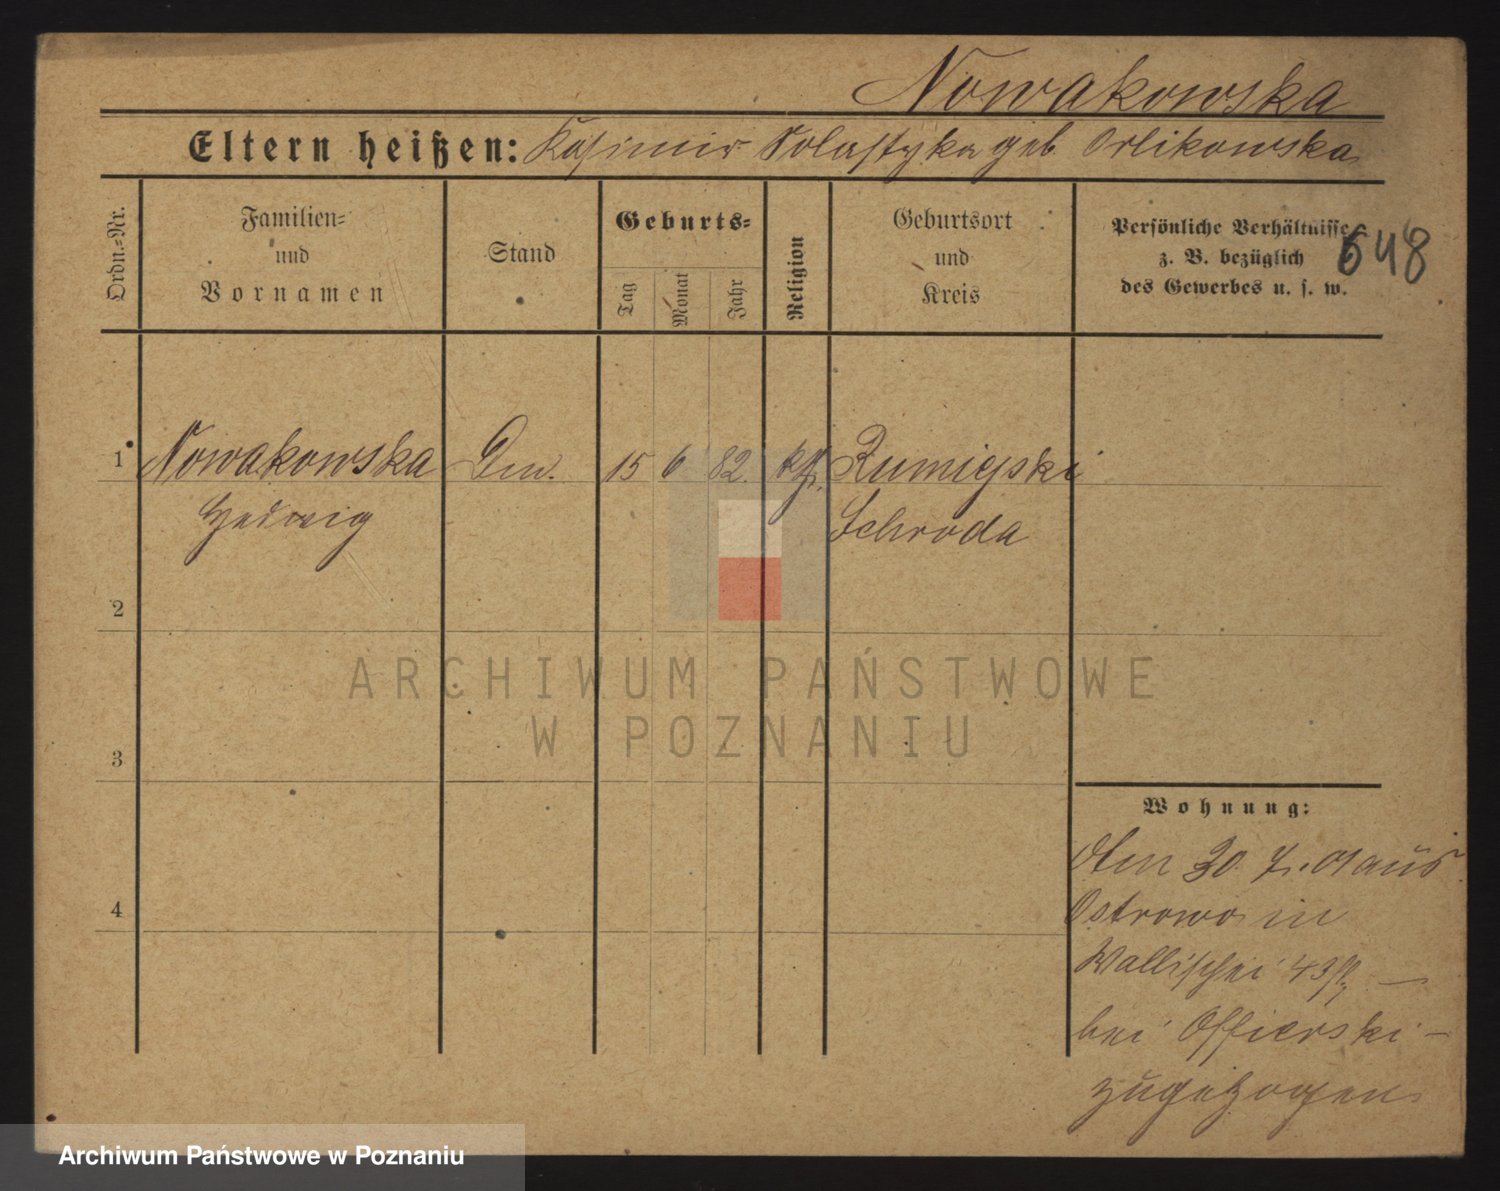 Nowakowska
Eltern heißen: Kasimir Solastyka geb. Orlikowska
Ordn.-Nr.
Familien-
und
Vornamen
Stand
Geburts-
Tag
Monat
Jahr
Religion
Geburtsort
und
Kreis
Persönliche Verhältnisse
z. B. bezüglich
des Gewerbes u. s. w.
648
1 Nowakowska 15 6 82. kth. Rumiejski
Hedwig Schroda
2
3
4
Wohnung:
Am 30. 7. 01 aus
Ostrowo in
Wallischei 43 –
bei Offierski –
zugezogen.
ARCHIWUM PAŃSTWOWE
W POZNANIU
Archiwum Państwowe w Poznaniu